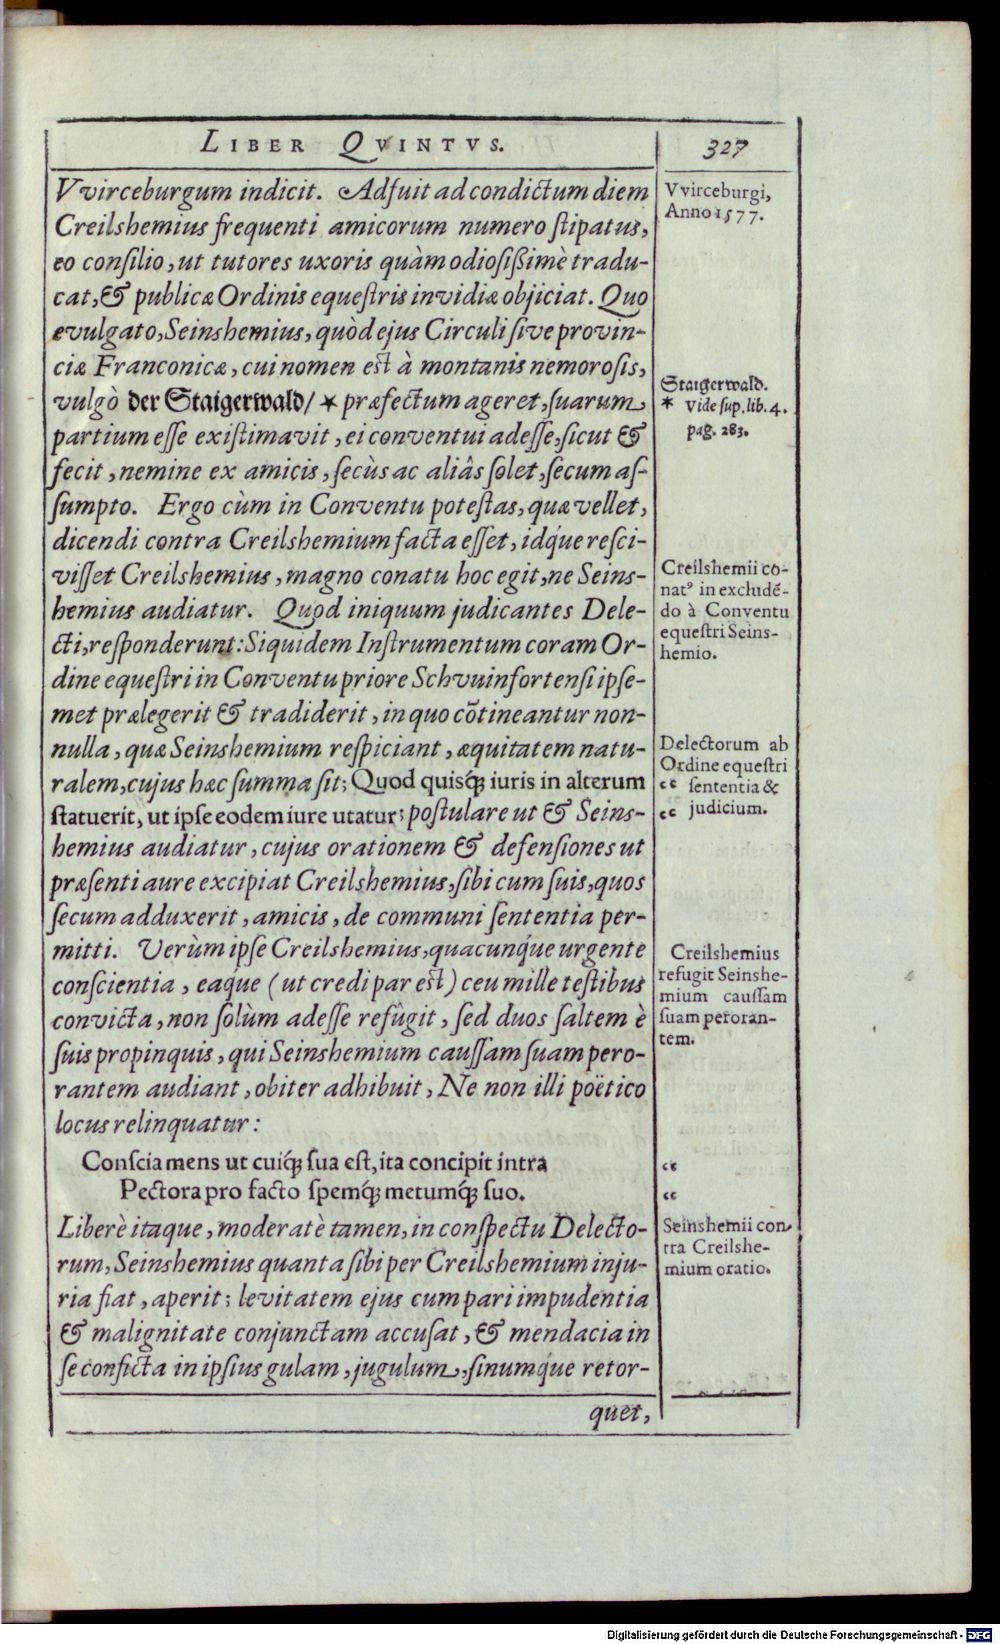 LIBER QVINTVS.
327
Vvirceburgum indicit. Adfuit ad condictum diem
Creilshemius frequenti amicorum numero stipatus,
eo consilio, ut tutores uxoris quàm odiosißimè tradu-
cat, & publicæ Ordinis equestris invidiæ objiciat. Quo
evulgato, Seinshemius, quòd ejus Circuli sive provin-
ciæ Franconicæ, cui nomen est à montanis nemorosis,
vulgò der Staigerwald/ * præfectum ageret, suarum
partium esse existimavit, ei conventui adesse, sicut &
fecit, nemine ex amicis, secùs ac aliâs solet, secum as-
sumpto. Ergo cùm in Conventu potestas, quæ vellet,
dicendi contra Creilshemium facta esset, idq́ue resci-
visset Creilshemius, magno conatu hoc egit, ne Seins-
hemius audiatur. Quod iniquum judicantes Dele-
cti, responderunt: Siquidem Instrumentum coram Or-
dine equestri in Conventu priore Schvuinfortensi ipse-
met prælegerit & tradiderit, in quo cõtineantur non-
nulla, quæ Seinshemium respiciant, æquitatem natu-
ralem, cujus hæc summa sit; Quod quisq́; iuris in alterum
statuerit, ut ipse eodem iure utatur; postulare ut & Seins-
hemius audiatur, cujus orationem & defensiones ut
præsenti aure excipiat Creilshemius, sibi cum suis, quos
secum adduxerit, amicis, de communi sententia per-
mitti. Verùm ipse Creilshemius, quacunq́ue urgente
conscientia, eaq́ue (ut credi par est) ceu mille testibus
convicta, non solùm adesse refûgit, sed duos saltem è
suis propinquis, qui Seinshemium caussam suam pero-
rantem audiant, obiter adhibuit, Ne non illi poëtico
locus relinquatur:
Conscia mens ut cuiq́; sua est, ita concipit intra
Pectora pro facto spemq́; metumq́; suo.
Liberè itaque, moderatè tamen, in conspectu Delecto-
rum, Seinshemius quanta sibi per Creilshemium inju-
ria fiat, aperit; levitatem ejus cum pari impudentia
& malignitate conjunctam accusat, & mendacia in
se conficta in ipsius gulam, jugulum, sinumq́ue retor-
quet,
Vvirceburgi,
Anno 1577.
Staigerwald.
* Vide sup. lib. 4.
pag. 283.
Creilshemii co-
natꝰ in excludẽ-
do à Conventu
equestri Seins-
hemio.
Delectorum ab
Ordine equestri
“ sententia &
“ judicium.
Creilshemius
refugit Seinshe-
mium caussam
suam peroran-
tem.
“
“
Seinshemii con-
tra Creilshe-
mium oratio.
Digitalisierung gefördert durch die Deutsche Forschungsgemeinschaft - DFG